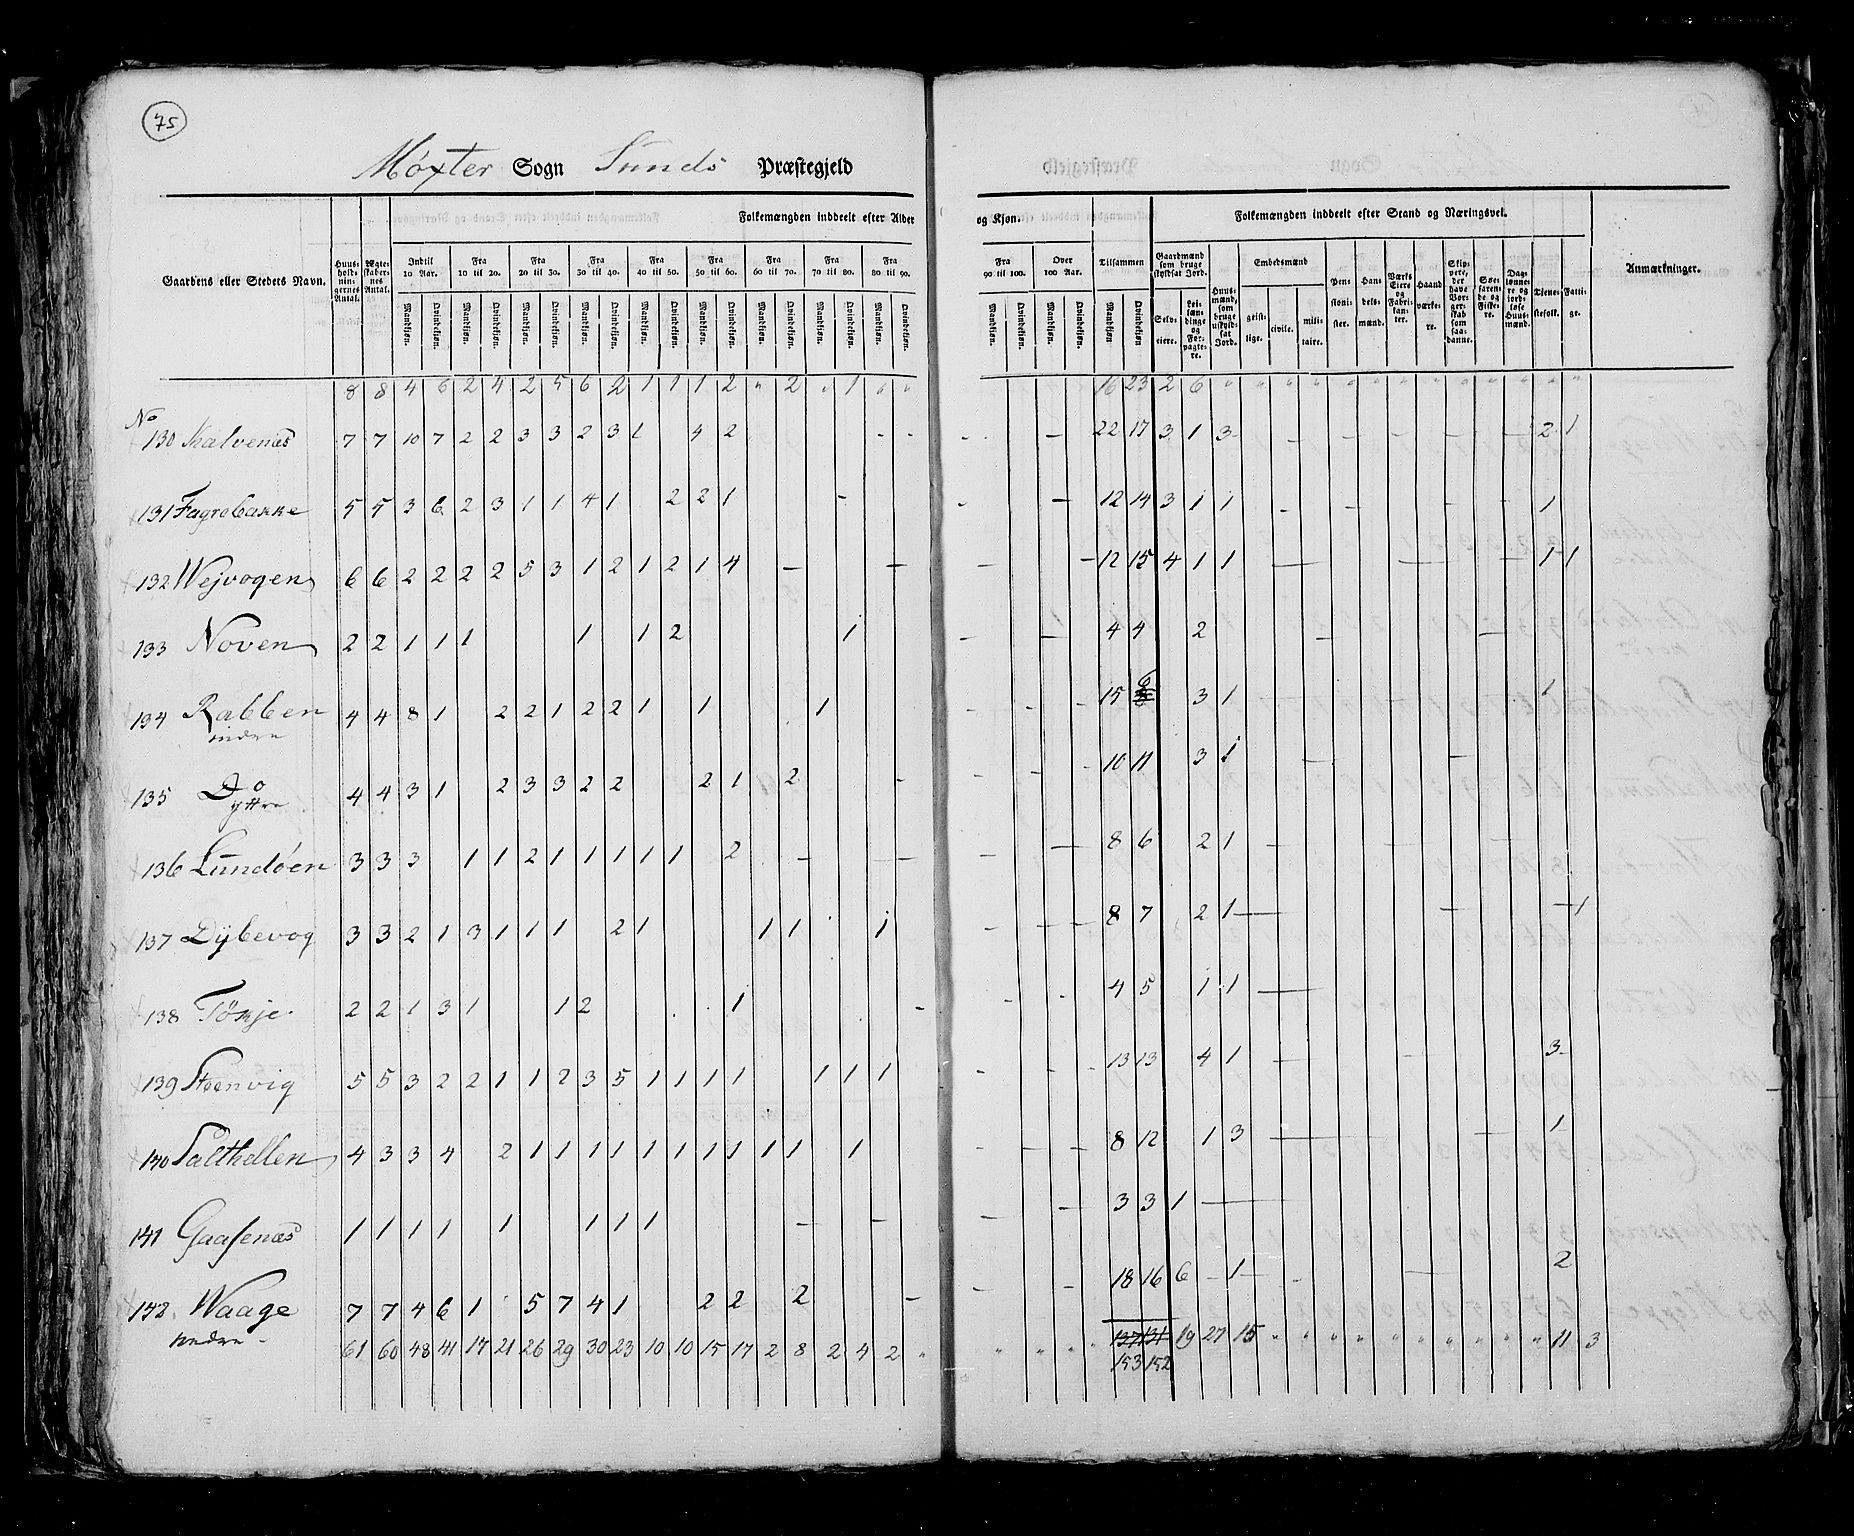 75
Møxter Sogn Sunds Præstegjeld
Folkemængden inddeelt efter Alder og Kjøn.
Folkemængden inddeelt efter Stand og Næringsvei.
Gaardens eller Stedets Navn.
Huus-holdningernes Antal.
Ægteskabernes Antal.
Indtil 10 Aar. Fra 10 til 20. Fra 20 til 30. Fra 30 til 40. Fra 40 til 50. Fra 50 til 60. Fra 60 til 70. Fra 70 til 80. Fra 80 til 90. Fra 90 til 100. Over 100 Aar. Tilsammen
Mandkiøn. Qvindekiøn.
Gaardmænd som bruge skyldsat Jord.
Selveiere.
Leilændinge og Forpagtere.
Huusmænd, som bruge uskyldsat Jord.
Embedsmænd
geistlige. civile. militaire.
Pensionister.
Handelsmænd.
Værks Eiere og Fabrikanter.
Haandværkere.
Skippere, der have Borgerskab som saadanne.
Søefarende og Fiskere.
Daglønnere og jordløse Huusmænd.
Tjenestefolk.
Fattige.
Anmærkninger.
8 8 4 6 2 4 2 5 6 2 1 1 1 2 " 2 " 1 " " 16 23 2 6 " " " " " " " " " " " " "
No 130 Kalvenæs 7 7 10 7 2 2 3 3 2 3 1 4 2 - - - - 22 17 3 1 3 - - - - - - 2 1
131 Fagrebakke 5 5 3 6 2 3 1 1 4 1 2 2 1 - - - 12 14 3 1 1 - - - - 1
132 Wejvogen 6 6 2 2 2 2 5 3 1 2 1 2 1 4 - - - - 12 15 4 1 1 - - - 1 1
133 Noven 2 2 1 1 1 1 1 2 1 - - 4 4 2 - -
134 Rabben indre 4 4 8 1 2 2 1 2 2 1 1 1 - - - 15 6 3 1 1
135 Do yttre 4 4 3 1 2 3 3 2 2 2 1 2 - - - - 10 11 3 1 - -
136 Lundøen 3 3 3 1 1 2 1 1 1 1 1 2 - - - - 8 6 2 1 - - -
137 Dybevog 3 3 2 1 3 1 1 1 2 1 1 1 1 - - - 8 7 2 1 - - - 1
138 Tøkje 2 2 1 3 1 1 2 1 - - - 4 5 1 1 -
139 Steenvig 5 5 3 2 2 1 1 2 3 5 1 1 1 1 1 1 1 - - - 13 13 4 1 - - 3
140 Salthellen 4 3 3 4 2 1 1 1 1 1 1 1 1 1 1 1 - - - 8 12 1 3 - - 1
141 Gaasenæs 1 1 1 1 1 1 1 1 - - - - 3 3 1 -
142. Waage nedre 7 7 4 6 1 5 7 4 1 2 2 2 - - - 18 16 6 - 1 - - - 2
61 60 48 41 17 21 26 29 30 23 10 10 15 17 2 8 2 4 2 " " " " " 137 131 19 27 15 " " " " " " " " " " 11 3
153 152